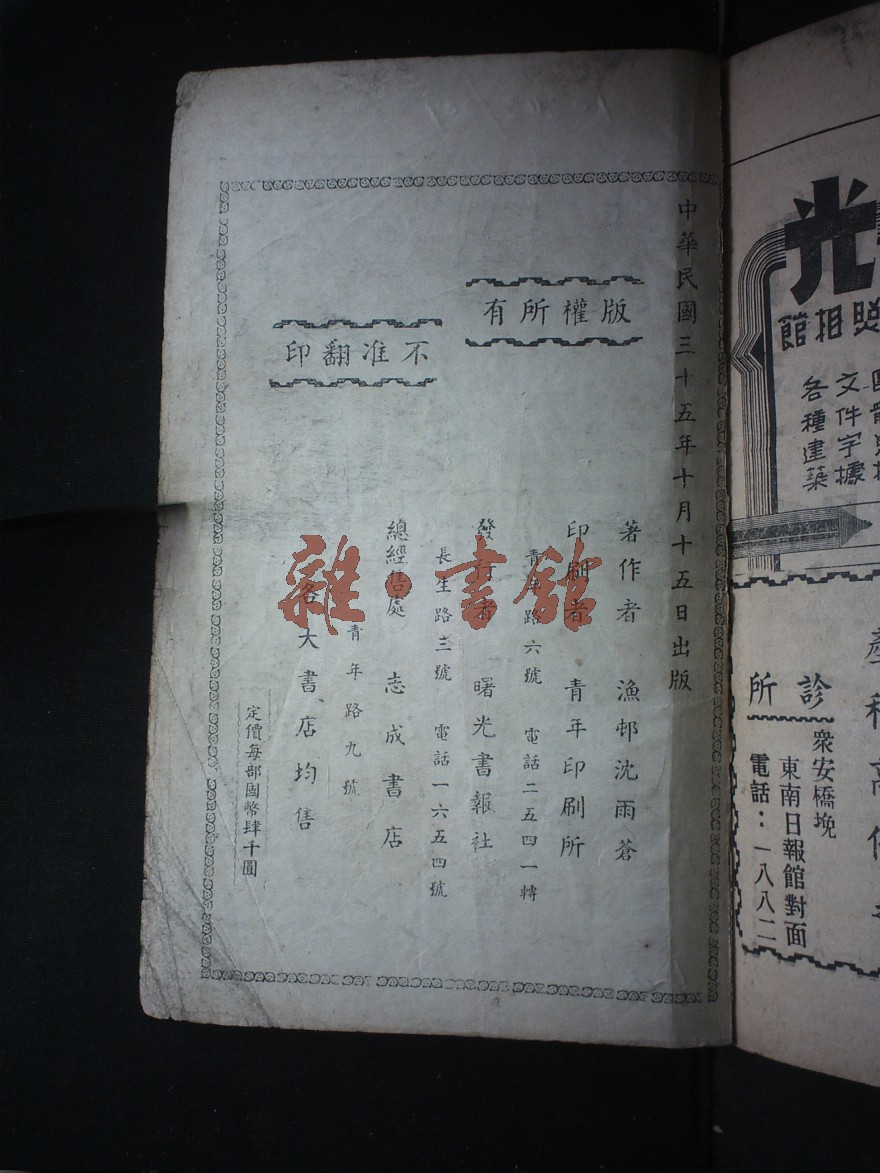 中華民國三十五年十月十五日出版
版權所有
不准翻印
著作者 漁邨沈雨蒼
印刷者 青年印刷所
青年路六號 電話二五四一轉
發行者 曙光書報社
長生路三號 電話一六五四號
總經售處 志成書店
青年路九號
各大書店均售
定價每部國幣肆千圓
雜·書館
光
照相館
文件字據
各種建築
診所
眾安橋堍
東南日報館對面
電話：一八八二